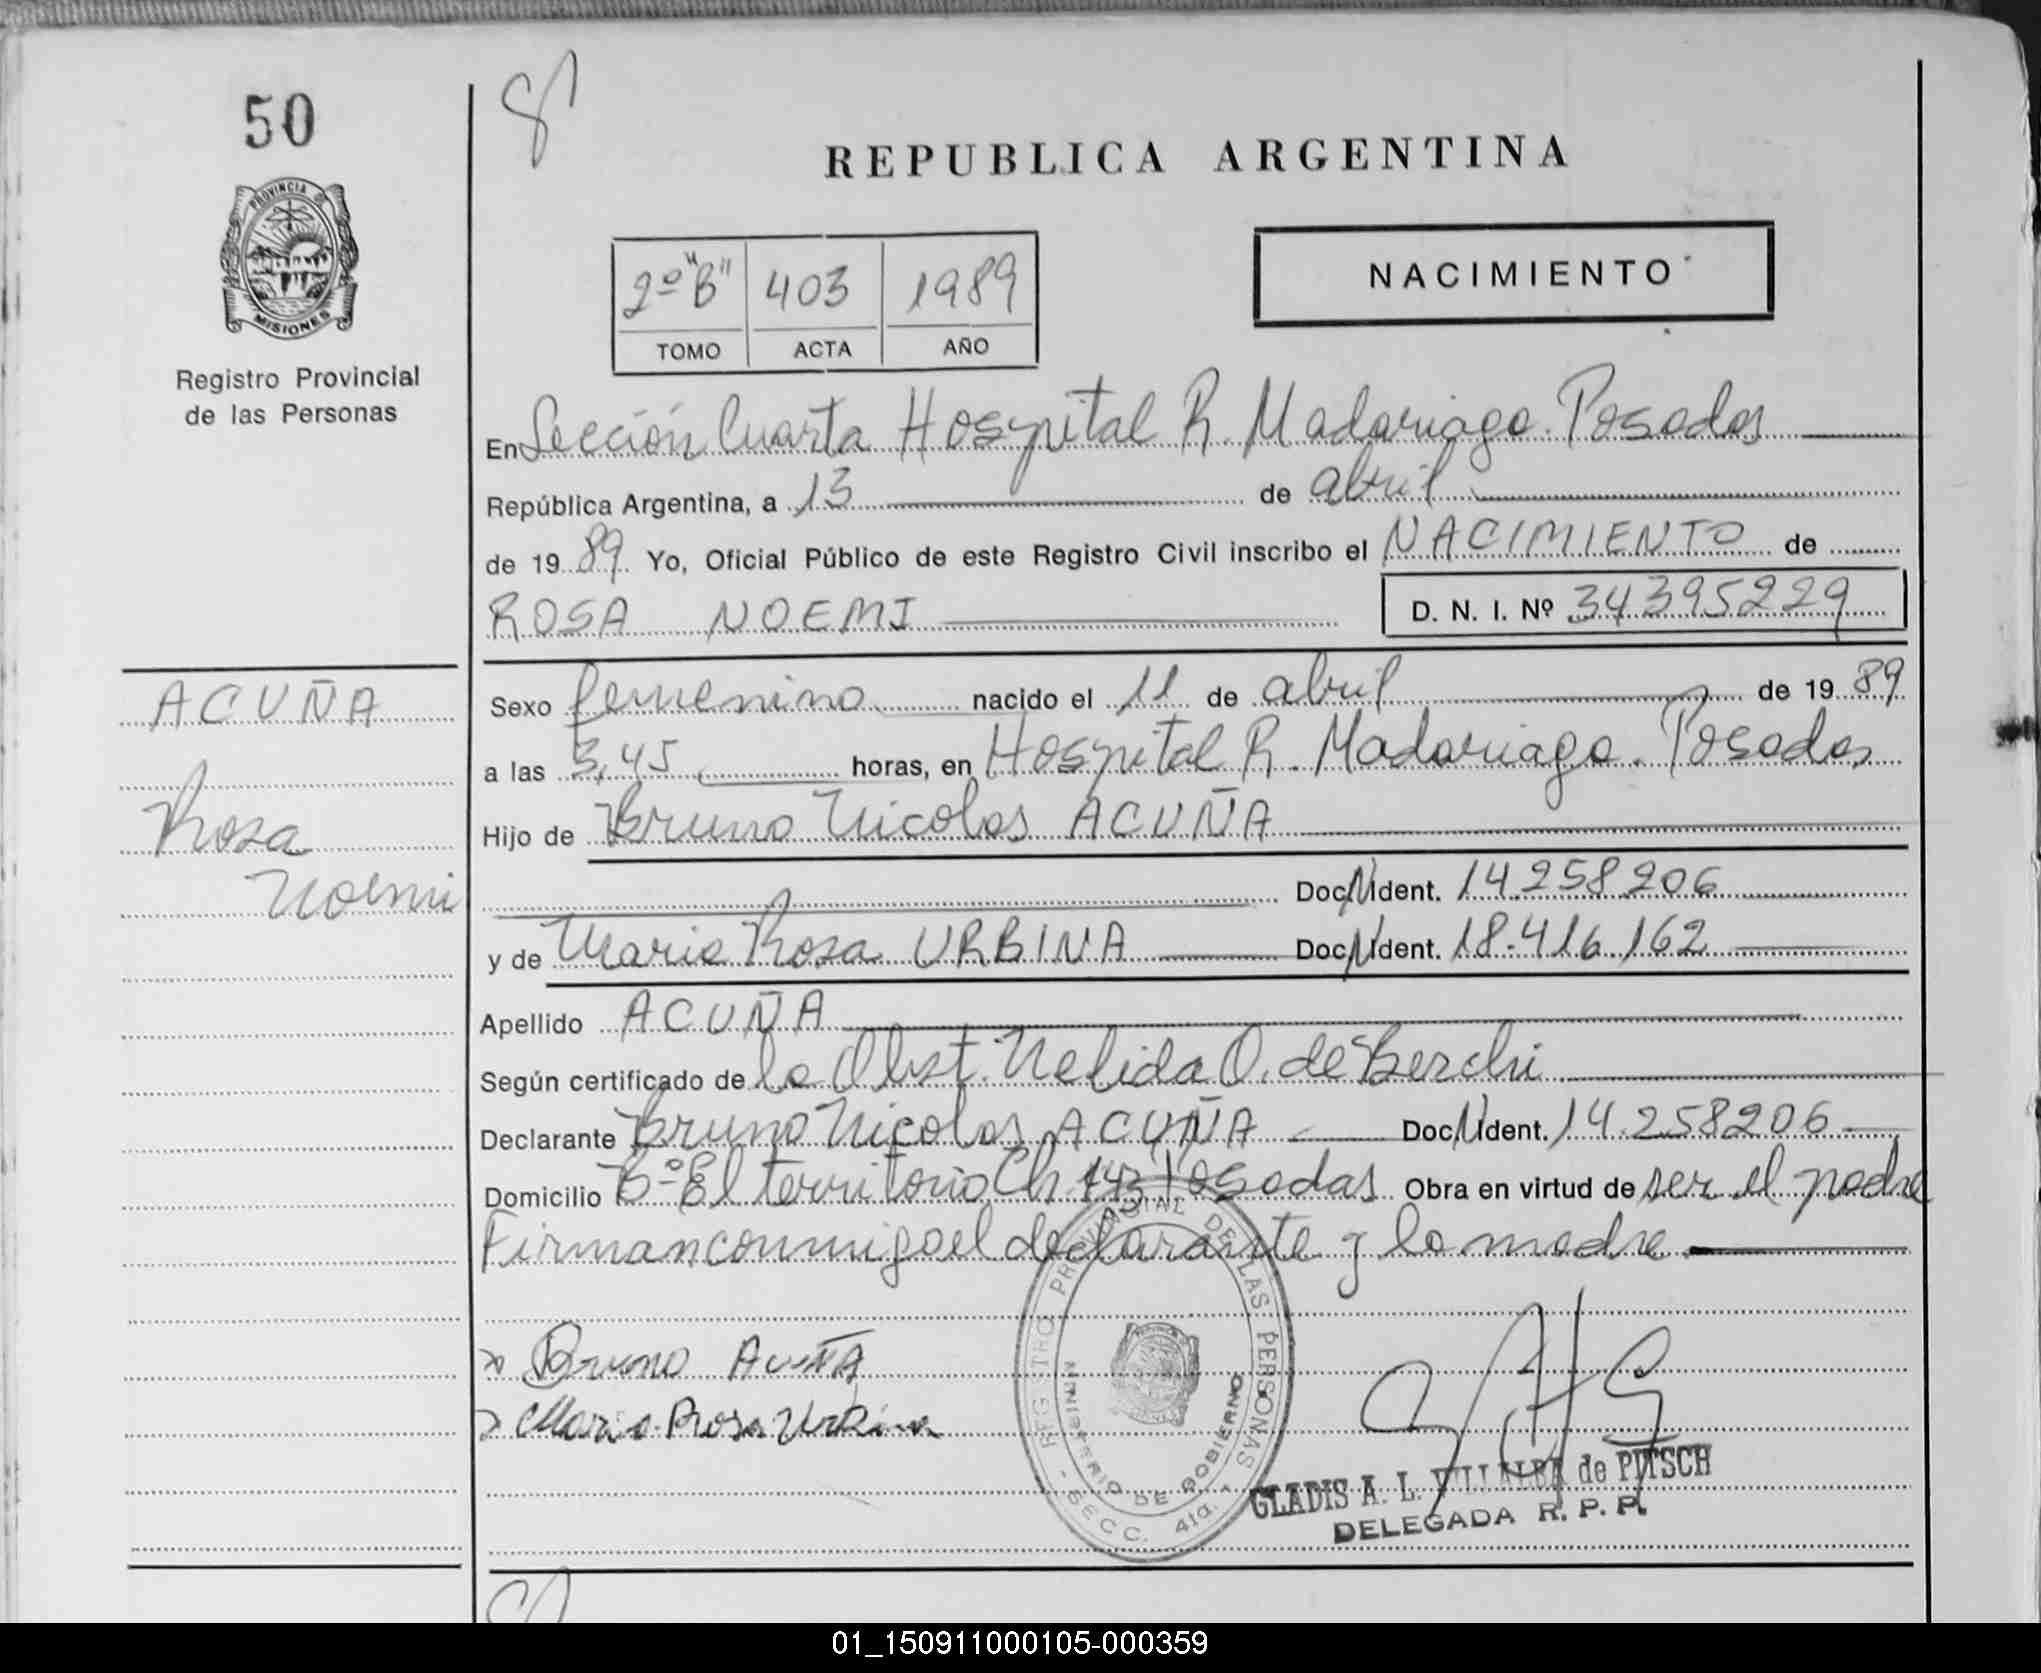 50
PROVINCIA DE
MISIONES
Registro Provincial
de las Personas
REPUBLICA ARGENTINA
2º "B" 403 1989
TOMO ACTA AÑO
NACIMIENTO
En Sección Cuarta Hospital R. Madariaga. Posadas
República Argentina, a 13 de abril
de 1989 Yo, Oficial Público de este Registro Civil inscribo el NACIMIENTO de
ROSA NOEMI D. N. I. Nº 34395229
ACUÑA
Rosa
Noemi
Sexo femenino nacido el 11 de abril de 1989
a las 3,45 horas, en Hospital R. Madariaga. Posadas
Hijo de Bruno Nicolas ACUÑA
Doc. N. Ident. 14.258206
y de Maria Rosa URBINA Doc. N. Ident. 18.416.162
Apellido ACUÑA
Según certificado de la Obst. Nelida O. de Berchi
Declarante Bruno Nicolas ACUÑA Doc. N. Ident. 14.258206
Domicilio Bº El territorio Ch 143 Posadas Obra en virtud de ser el padre
Firman conmigo el declarante y la madre
Bruno Acuña
Maria Rosa Urbina
REGISTRO PROVINCIAL DE LAS PERSONAS
MINISTERIO DE GOBIERNO
- SECC. 4ta. -
GLADIS A. L. VILLALBA de PITSCH
DELEGADA R. P. P.
01_150911000105-000359